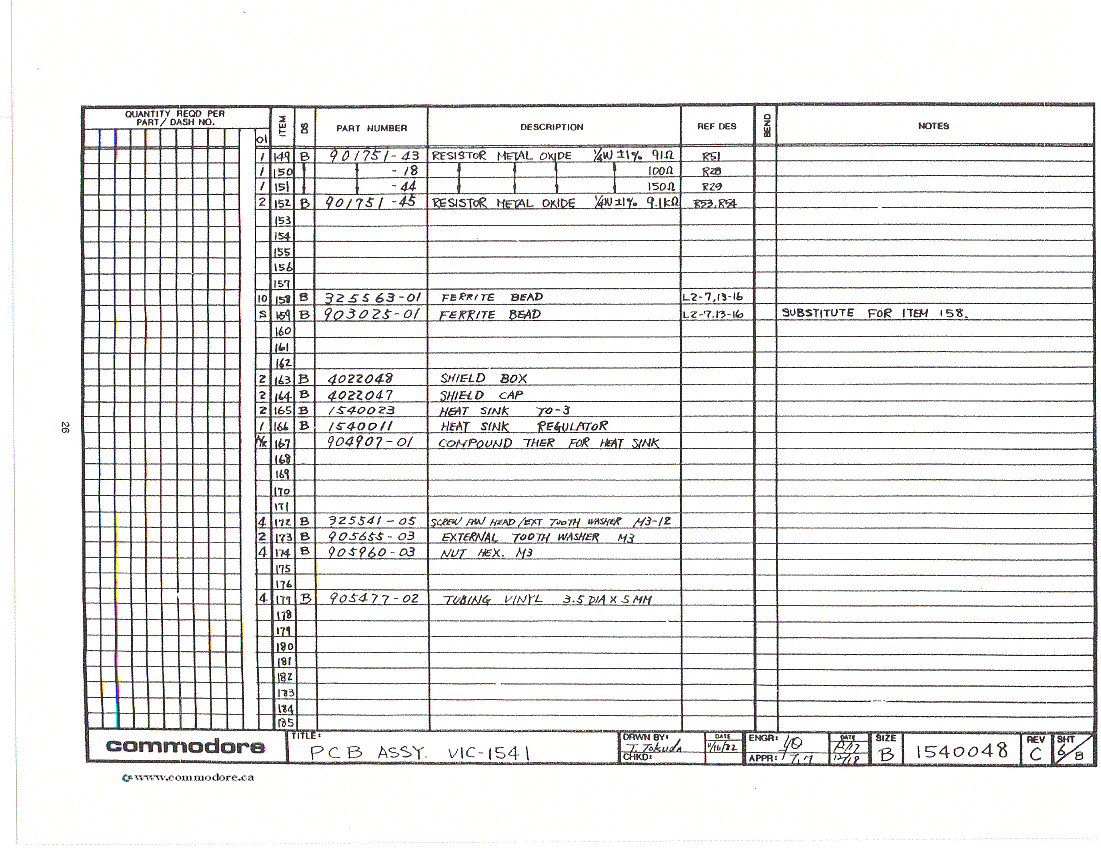 QUANTITY REQD PER
PART/ DASH NO.
01 ITEM DS PART NUMBER DESCRIPTION REF DES BEND NOTES
1 149 B 901751-43 RESISTOR METAL OXIDE ¼W ±1% 91Ω R51
1 150 -18 100Ω R28
1 151 -44 150Ω R29
2 152 B 901751-45 RESISTOR METAL OXIDE ¼W ±1% 9.1KΩ R53,R54
153
154
155
156
157
10 158 B 325563-01 FERRITE BEAD L2-7,13-16
S 159 B 903025-01 FERRITE BEAD L2-7,13-16 SUBSTITUTE FOR ITEM 158.
160
161
162
2 163 B 4022048 SHIELD BOX
2 164 B 4022047 SHIELD CAP
2 165 B 1540023 HEAT SINK TO-3
1 166 B 1540011 HEAT SINK REGULATOR
167 904907-01 COMPOUND THER FOR HEAT SINK
168
169
170
171
4 172 B 325541-05 SCREW PAN HEAD/EXT TOOTH WASHER M3-12
2 173 B 905655-03 EXTERNAL TOOTH WASHER M3
4 174 B 905960-03 NUT HEX. M3
175
176
4 177 B 905477-02 TUBING VINYL 3.5 DIA X 5 MM
178
179
180
181
182
183
184
185
26
commodore TITLE: PCB ASSY. VIC-1541 DRWN BY: T. Tokuda DATE 11/16/82 ENGR: DATE SIZE B 1540048 REV C SHT 6/8
CHKD: APPR: 12/18
www.commodore.ca